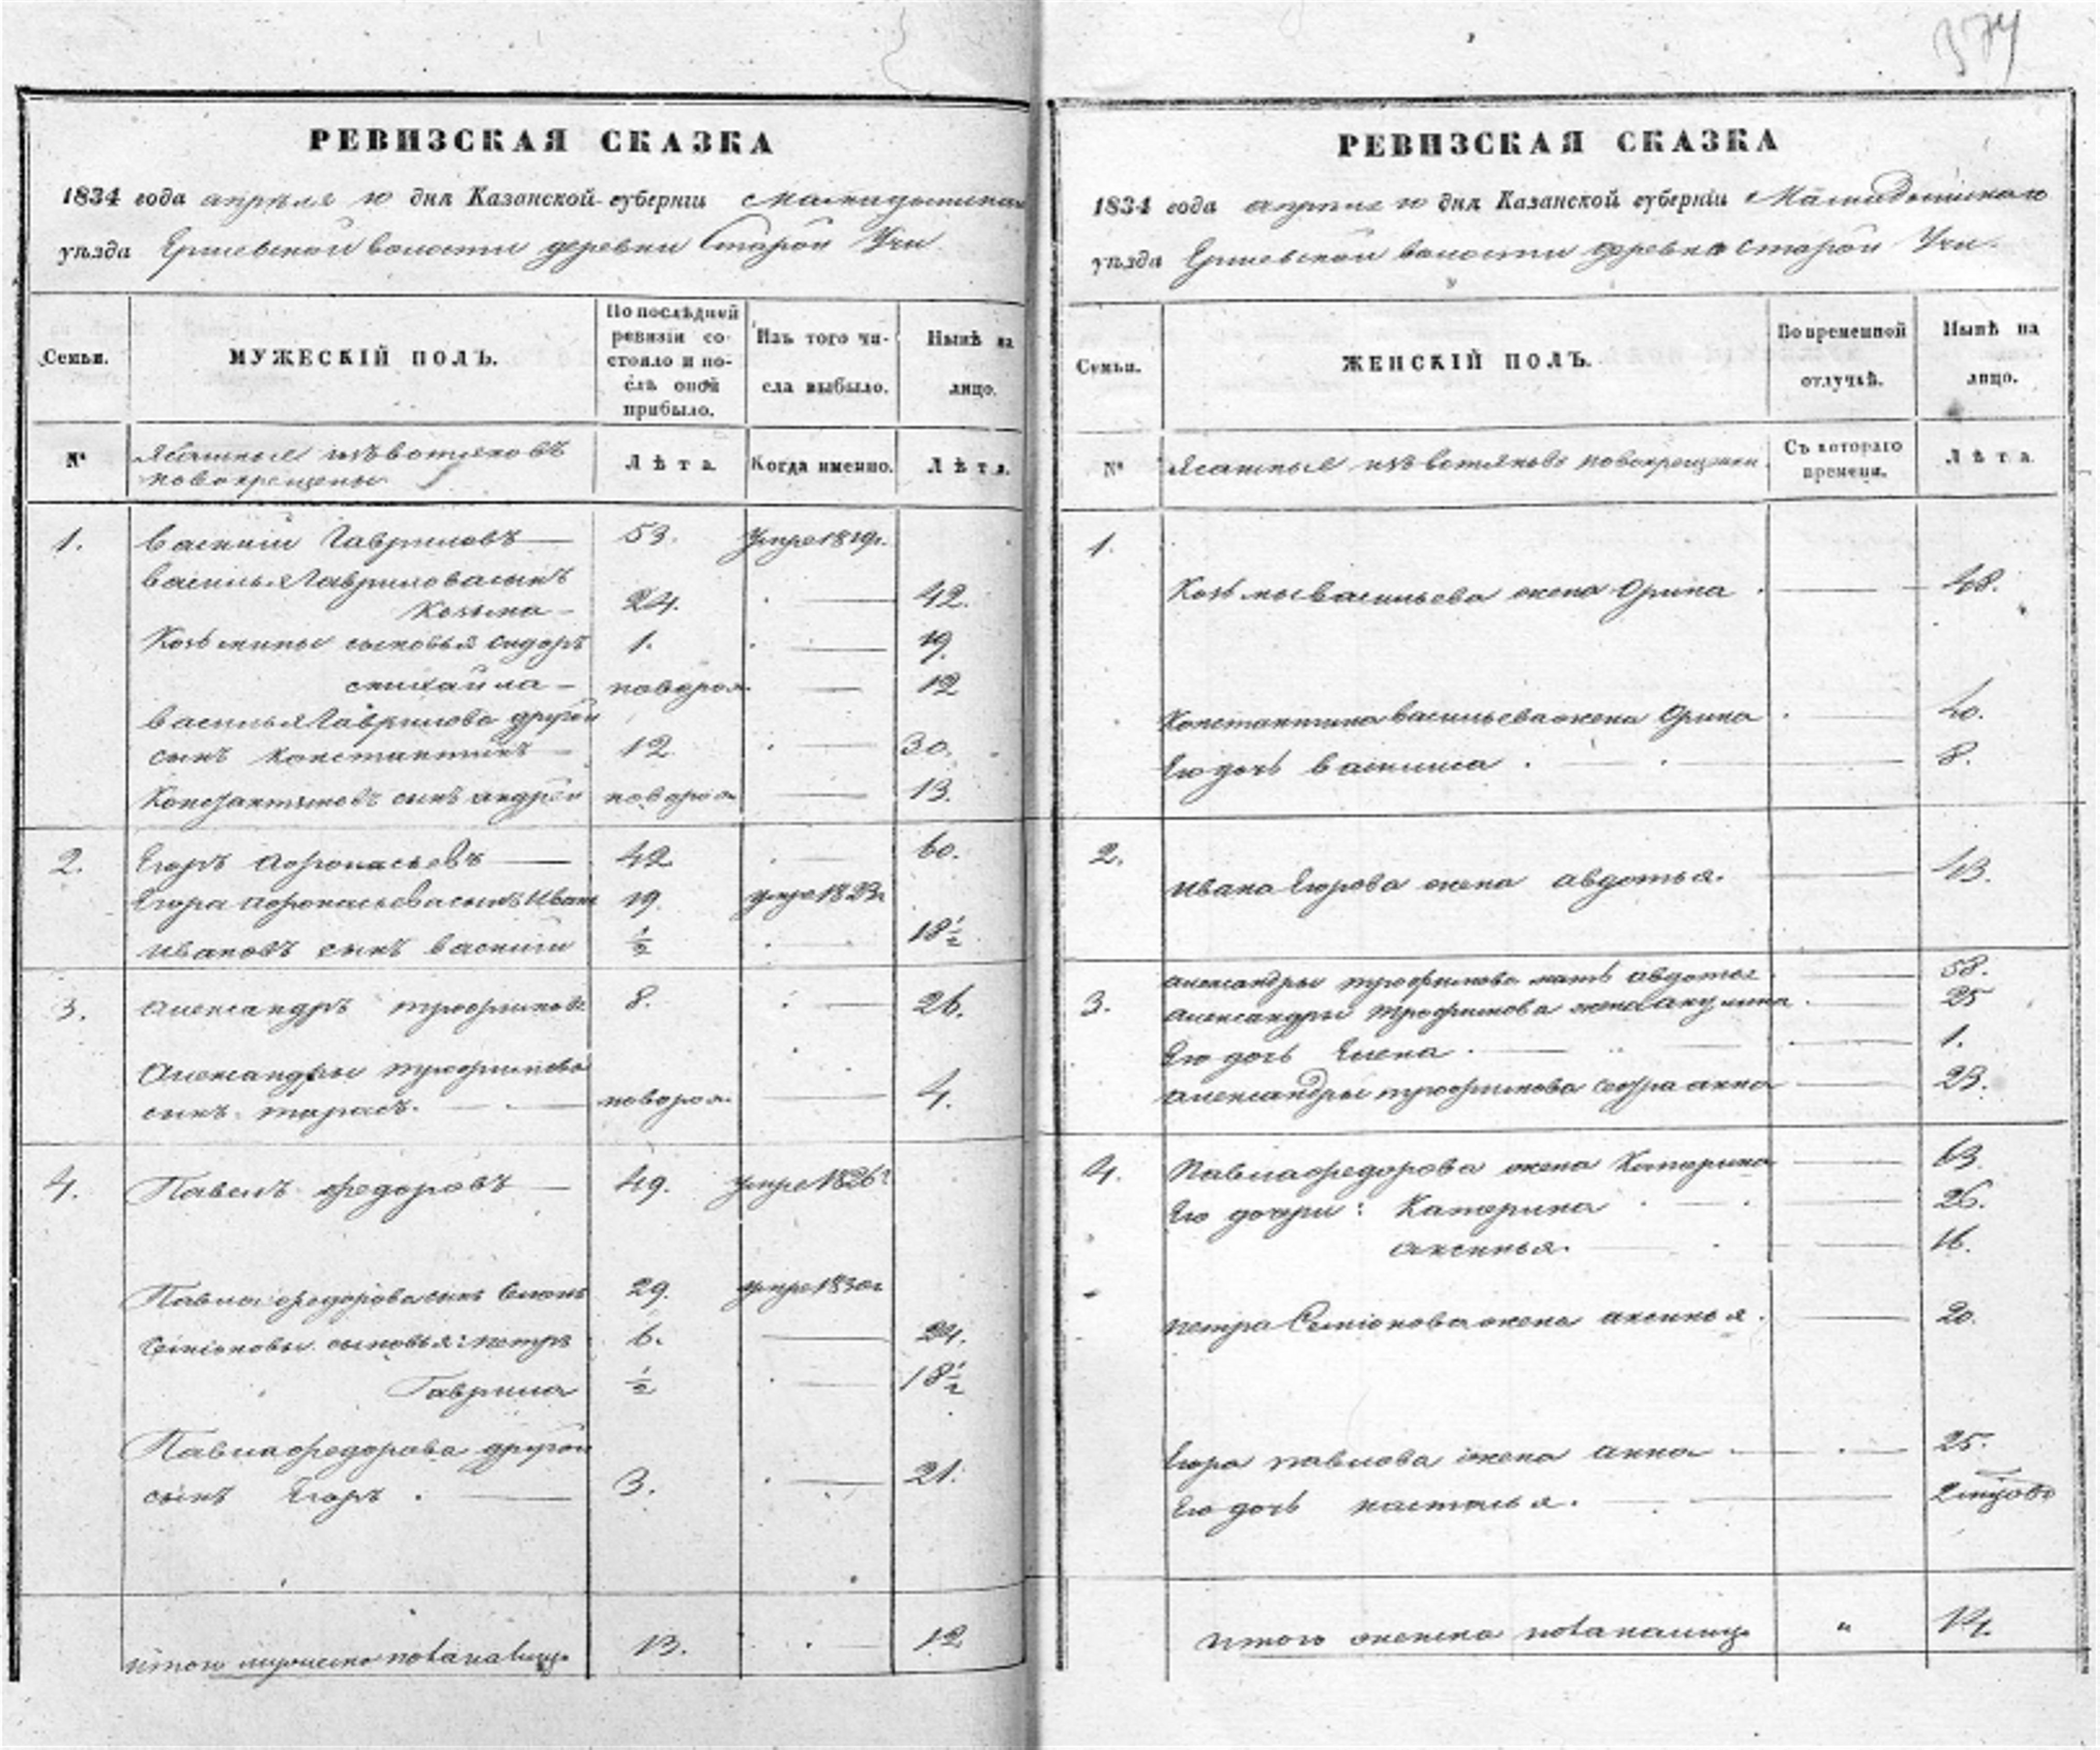 374
РЕВИЗСКАЯ СКАЗКА
1834 года апреля 10 дня Казанской губерніи Мамадышскаго
уѣзда Ершевской волости деревни Старой Учи
Семьи.
МУЖЕСКІЙ ПОЛЪ.
По послѣдней
ревизіи со-
стояло и по-
слѣ оной
прибыло.
Изъ того чи-
сла выбыло.
Нынѣ на
лицо.
№
Ясашные изъ вотяковъ
новокрещены
Лѣта
Когда именно.
Лѣта.
1. Василій Гавриловъ — 53. умре 1819г.
Василья Гаврилова сынъ
Козьма — 24. — 42.
Козьмины сыновья Сидоръ 1. — 19.
Михайла — новорож. — 12
Василья Гаврилова другой
сынъ Константинъ — 12 — 30.
Константиновъ сынъ Андрей новорож — 13.
2. Егоръ Афонасьевъ — 42 — 60.
Егора Афонасьева сынъ Иванъ 19. умре 1823г
Ивановъ сынъ Василій ½ — 18½
3. Александръ Трофимовъ 8. — 26.
Александры Трофимова
сынъ Тарасъ. — новорож. — 4.
4. Павелъ Федоровъ — 49. умре 1826г
Павла Федорова сынъ Семенъ 29. умре 1830г
Семіоновы сыновья: Петръ 6. — 24.
Гаврила ½ — 18½
Павла Федорова другой
сынъ Егоръ. — 3. — 21.
Итого мужеска пола налицо 13. — 12
РЕВИЗСКАЯ СКАЗКА
1834 года апреля 10 дня Казанской губерніи Мамадышскаго
уѣзда Ершевской волости деревни Старой Учи.
Семьи.
ЖЕНСКІЙ ПОЛЪ.
Во временной
отлучкѣ.
Нынѣ на
лицо.
№
Ясашные изъ вотяковъ новокрещены.
Съ котораго
времени.
Лѣта
1.
Козьмы Васильева жена Орина — 48.
Константина Васильева жена Орина — 40.
Его дочь Василиса — 8.
2.
Ивана Егорова жена Авдотья. — 43.
Александры Трофимова мать Авдотья — 58.
3. Александры Трофимова жена Акулина — 25
Его дочь Елена — 1.
Александры Трофимова сестра Анна — 23.
4. Павла Федорова жена Катерина — 63.
Его дочери: Катерина — 26.
Аксинья. — 16.
Петра Семіонова жена Аксинья. — 20.
Егора Павлова жена Анна — 25.
Его дочь Настасья. — 2
Итого женска пола налицо „ 14.